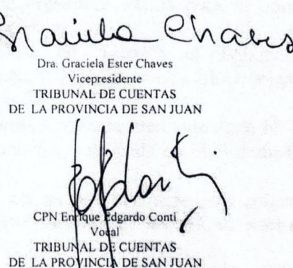 Graciela Chaves
Dra. Graciela Ester Chaves
Vicepresidente
TRIBUNAL DE CUENTAS
DE LA PROVINCIA DE SAN JUAN
CPN Enrique Edgardo Conti
Vocal
TRIBUNAL DE CUENTAS
DE LA PROVINCIA DE SAN JUAN